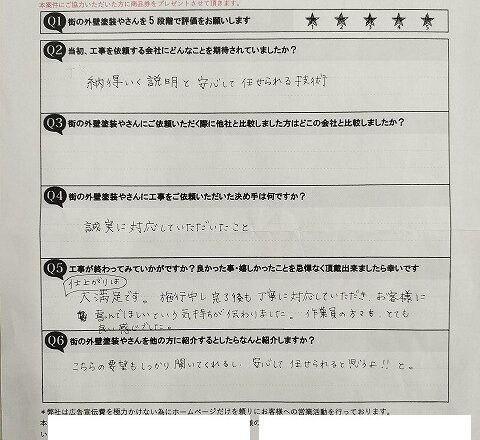 本案件にご協力いただいた方に商品券をプレゼントさせて頂きます。
Q1 街の外壁塗装やさんを5段階で評価をお願いします ★1 ★2 ★3 ★4 ★5
Q2 当初、工事を依頼する会社にどんなことを期待されていましたか?
納得いく説明と安心して任せられる技術
Q3 街の外壁塗装やさんにご依頼いただく際に他社と比較しました方はどこの会社と比較しましたか?
Q4 街の外壁塗装やさんに工事をご依頼いただいた決め手は何ですか?
誠実に対応していただいたこと
Q5 工事が終わってみていかがですか?良かった事・嬉しかったことを忌憚なく頂戴出来ましたら幸いです
仕上がりは
大満足です。施行中し完了後も丁寧に対応していただき、お客様に
喜んでほしいという気持ちが伝わりました。作業員の方々も、とても
良い感じでした。
Q6 街の外壁塗装やさんを他の方に紹介するとしたらなんと紹介しますか?
こちらの要望もしっかり聞いてくれるし、安心して任せられると思うよ!!と。
*弊社は広告宣伝費を極力かけない為にホームページだけを頼りにお客様への営業活動を行っております。